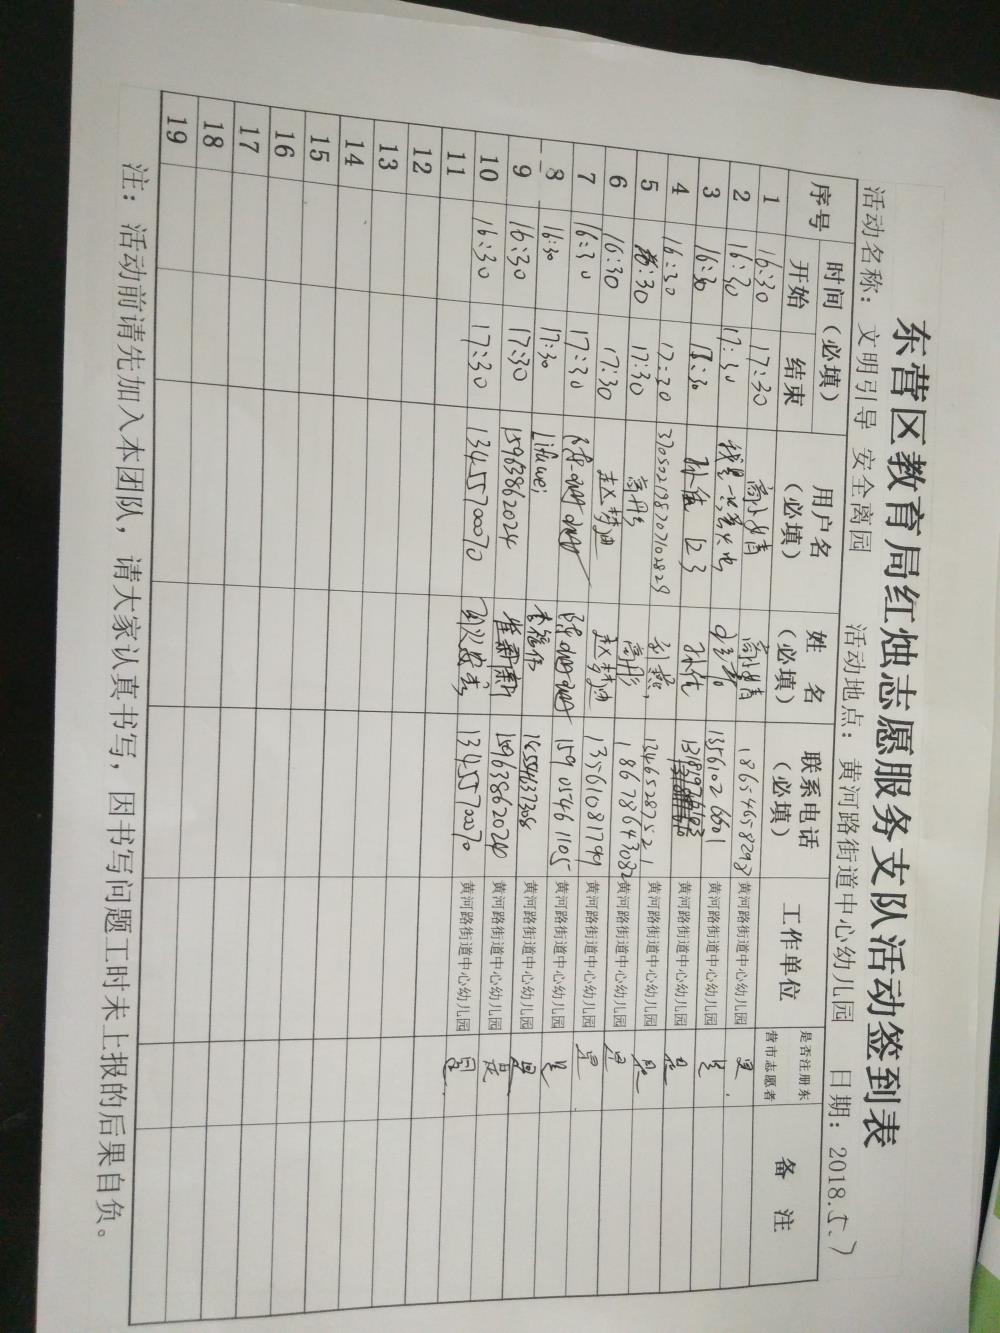 东营区教育局红烛志愿服务支队活动签到表
活动名称：文明引导 安全离园 活动地点：黄河路街道中心幼儿园 日期：2018.5.7
序号 时间（必填） 用户名（必填） 姓名（必填） 联系电话（必填） 工作单位 是否注册东营市志愿者 备注
开始 结束
1 16:30 17:30 18654658298 黄河路街道中心幼儿园 是
2 16:30 17:30 13561026601 黄河路街道中心幼儿园 是
3 16:30 17:30 孙佳123 孙佳 黄河路街道中心幼儿园 是
4 16:30 17:30 370502198707102829 13465287521 黄河路街道中心幼儿园 是
5 16:30 17:30 高彤 18678643082 黄河路街道中心幼儿园 是
6 16:30 17:30 赵梦迪 赵梦迪 13561081799 黄河路街道中心幼儿园 是
7 16:30 17:30 15905461105 黄河路街道中心幼儿园 是
8 16:30 17:30 lifuwei 李福伟 黄河路街道中心幼儿园 是
9 16:30 17:30 15963862024 15963862024 黄河路街道中心幼儿园 是
10 16:30 17:30 13455770070 13455770070 黄河路街道中心幼儿园 是
11
12
13
14
15
16
17
18
19
注：活动前请先加入本团队，请大家认真书写，因书写问题工时未上报的后果自负。